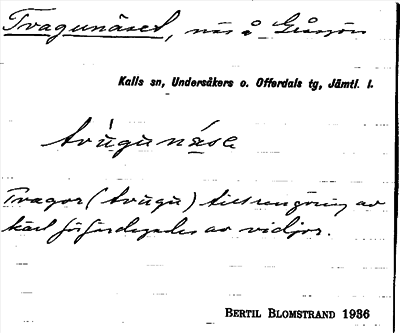 Tvagunäset, näs å Gåsjön
Kalls sn, Undersåkers o. Offerdals tg, Jämtl. l.
tvùgunä́se
Tvagor (tvugu) till rengöring av
kärl förfärdigades av vidjor.
BERTIL BLOMSTRAND 1936